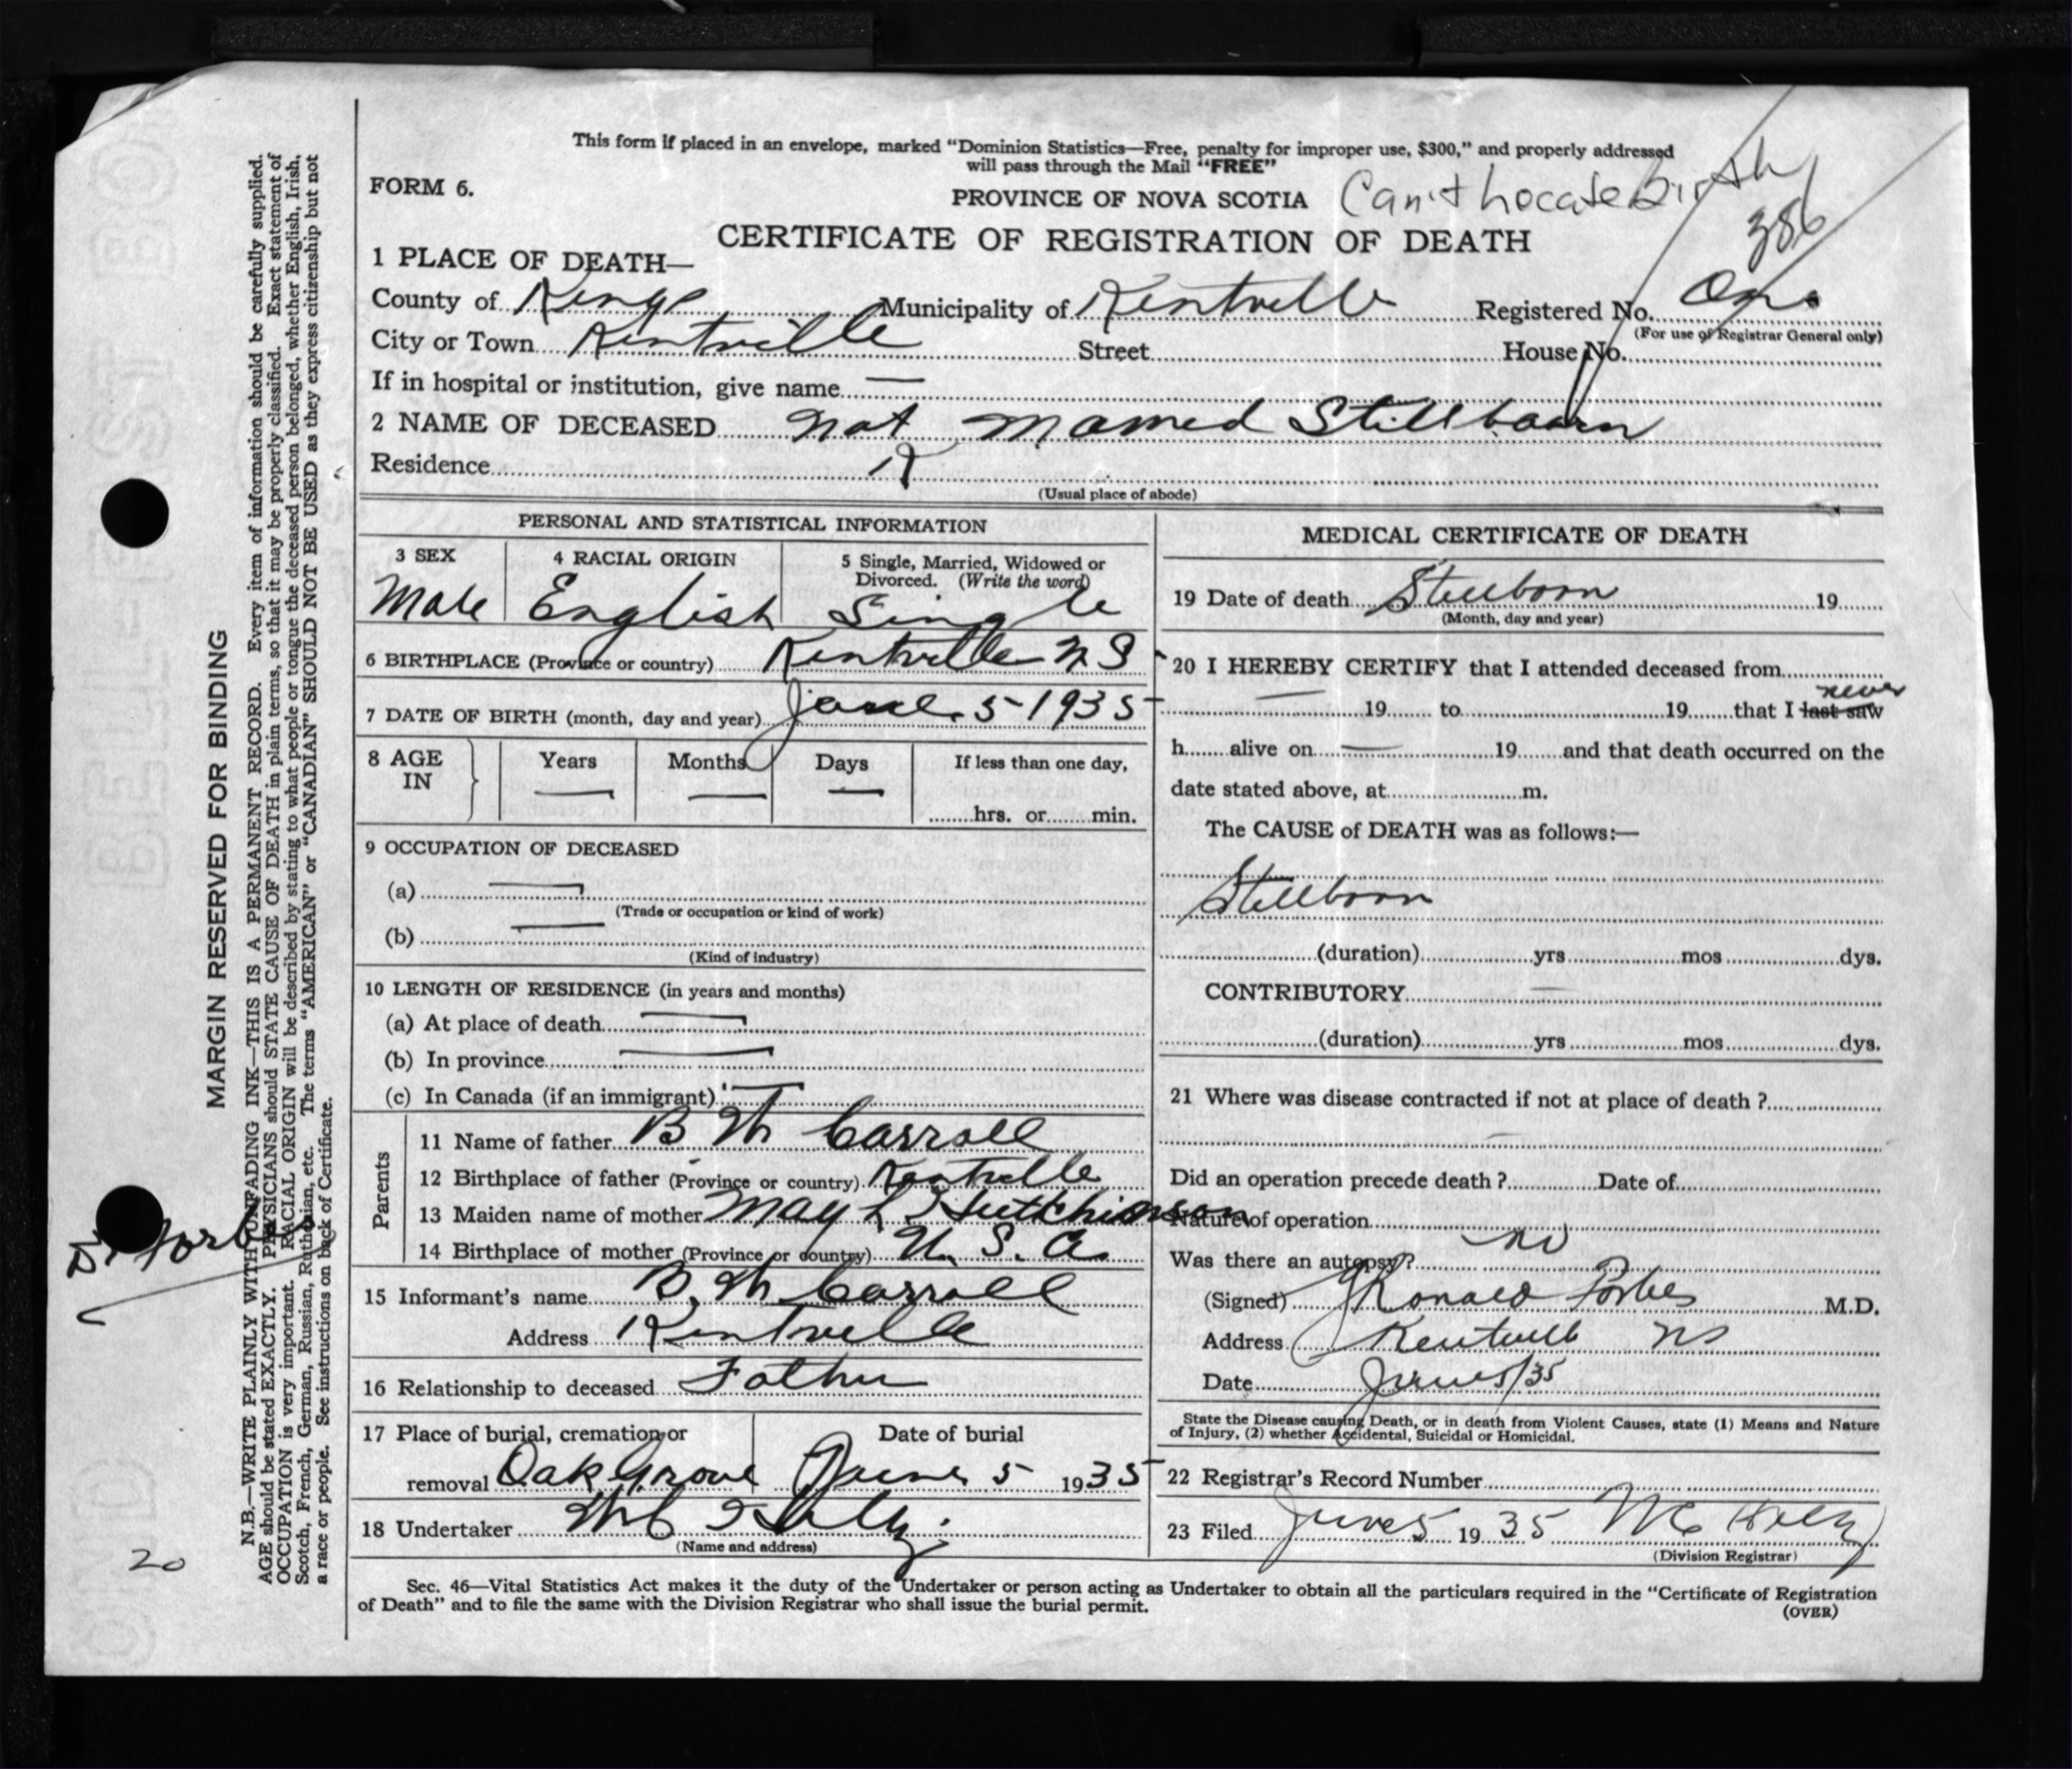 This form if placed in an envelope, marked “Dominion Statistics—Free, penalty for improper use, $300,” and properly addressed
will pass through the Mail “FREE”
FORM 6.
PROVINCE OF NOVA SCOTIA Can't Locate Birth
386
CERTIFICATE OF REGISTRATION OF DEATH
1 PLACE OF DEATH—
County of Kings Municipality of Kentville Registered No. One
(For use of Registrar General only)
City or Town Kentville Street House No.
If in hospital or institution, give name —
2 NAME OF DECEASED not named Stillborn
Residence
(Usual place of abode)
PERSONAL AND STATISTICAL INFORMATION
3 SEX 4 RACIAL ORIGIN 5 Single, Married, Widowed or
Divorced. (Write the word)
Male English Single
6 BIRTHPLACE (Province or country) Kentville N S
7 DATE OF BIRTH (month, day and year) June 5 1935
8 AGE IN Years Months Days If less than one day,
— — — hrs. or min.
9 OCCUPATION OF DECEASED
(a) —
(Trade or occupation or kind of work)
(b) —
(Kind of industry)
10 LENGTH OF RESIDENCE (in years and months)
(a) At place of death —
(b) In province —
(c) In Canada (if an immigrant) —
Parents
11 Name of father B W Carroll
12 Birthplace of father (Province or country) Kentville
13 Maiden name of mother May L Hutchinson
14 Birthplace of mother (Province or country) U. S. A.
15 Informant's name B. W Carroll
Address Kentville
16 Relationship to deceased Father
17 Place of burial, cremation or Date of burial
removal Oak Grove June 5 1935
18 Undertaker
(Name and address)
MEDICAL CERTIFICATE OF DEATH
19 Date of death Stillborn 19
(Month, day and year)
20 I HEREBY CERTIFY that I attended deceased from
never
— 19 to 19 that I last saw
h alive on — 19 and that death occurred on the
date stated above, at m.
The CAUSE of DEATH was as follows:—
Stillborn
(duration) yrs mos dys.
CONTRIBUTORY —
(duration) yrs mos dys.
21 Where was disease contracted if not at place of death ?
—
Did an operation precede death ? Date of
Nature of operation
Was there an autopsy? no
(Signed) J Ronald Forbes M.D.
Address Kentville NS
Date June 5/35
State the Disease causing Death, or in death from Violent Causes, state (1) Means and Nature
of Injury, (2) whether Accidental, Suicidal or Homicidal.
22 Registrar's Record Number
23 Filed June 5 19 35
(Division Registrar)
Sec. 46—Vital Statistics Act makes it the duty of the Undertaker or person acting as Undertaker to obtain all the particulars required in the “Certificate of Registration
of Death” and to file the same with the Division Registrar who shall issue the burial permit.
(OVER)
MARGIN RESERVED FOR BINDING
N.B.—WRITE PLAINLY WITH UNFADING INK—THIS IS A PERMANENT RECORD. Every item of information should be carefully supplied.
AGE should be stated EXACTLY. PHYSICIANS should STATE CAUSE OF DEATH in plain terms, so that it may be properly classified. Exact statement of
OCCUPATION is very important. RACIAL ORIGIN will be described by stating to what people or tongue the deceased person belonged, whether English, Irish,
Scotch, French, German, Russian, Ruthenian, etc. The terms “AMERICAN” or “CANADIAN” SHOULD NOT BE USED as they express citizenship but not
a race or people. See instructions on back of Certificate.
Dr Forbes
20